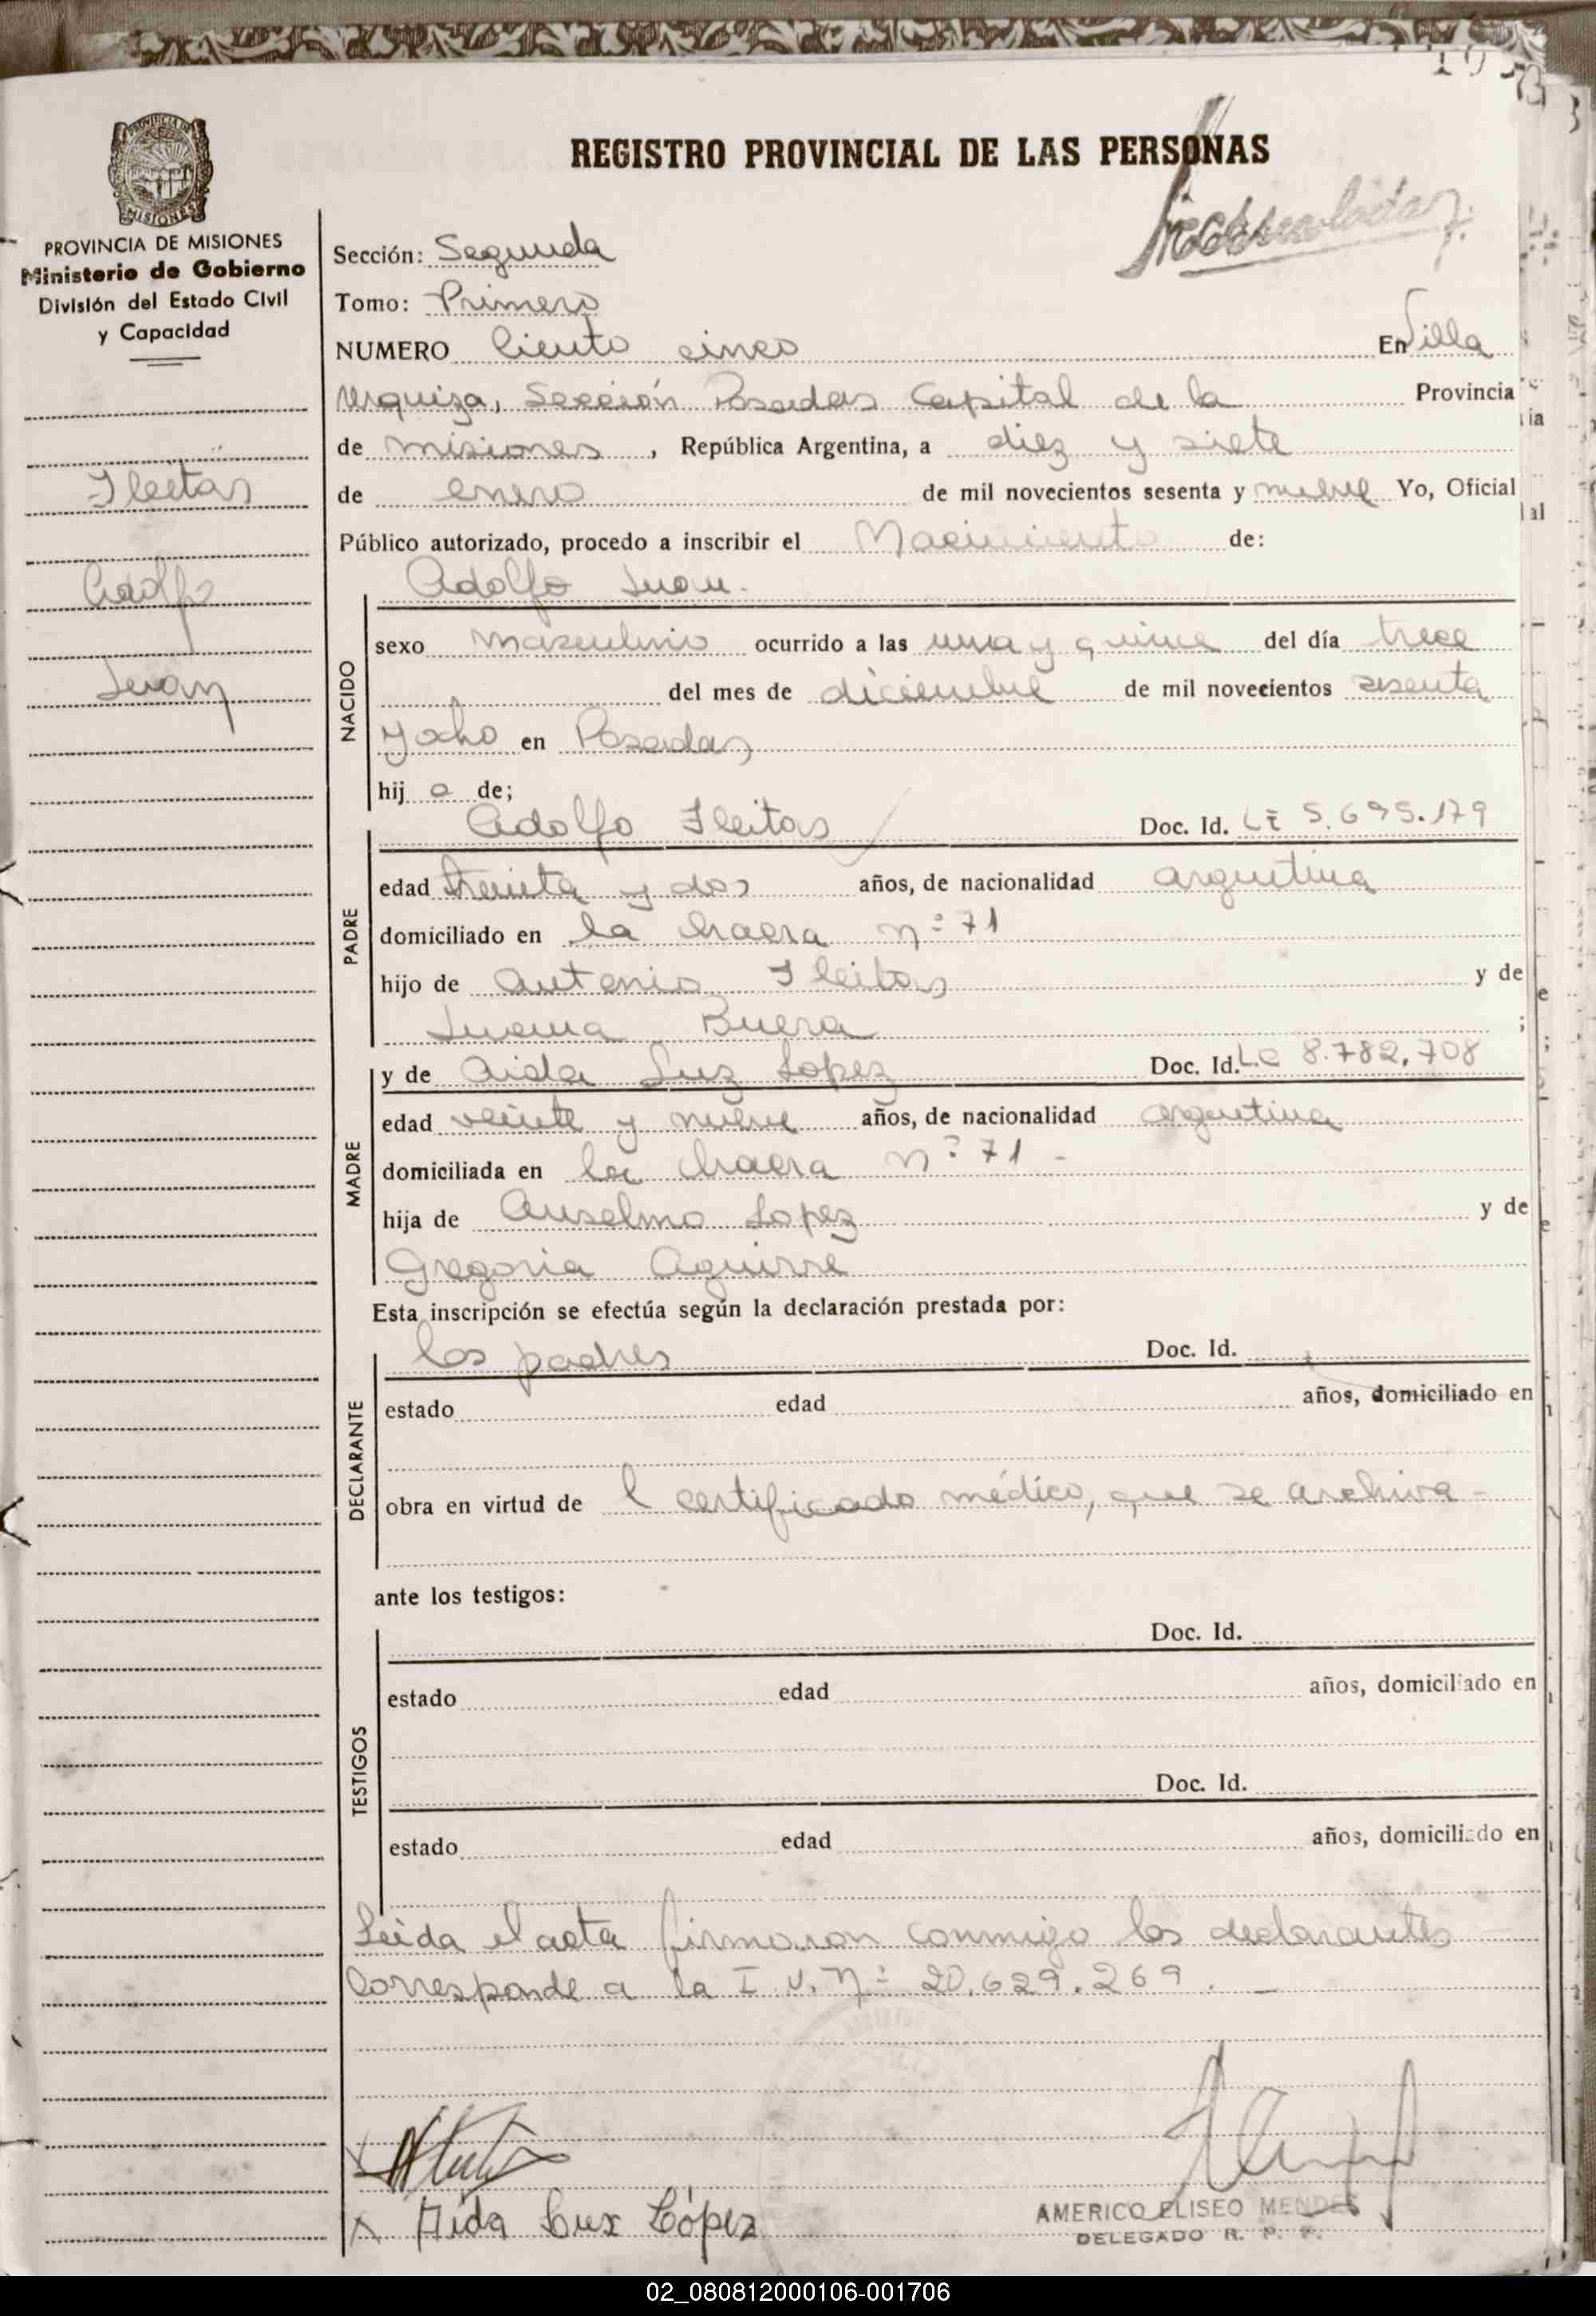 REGISTRO PROVINCIAL DE LAS PERSONAS
PROVINCIA DE MISIONES
Ministerio de Gobierno
División del Estado Civil
y Capacidad
Fleitas
Adolfo
Juan
Sección: Segunda
Tomo: Primero
NUMERO Ciento cinco En Villa
Urquiza, Sección Posadas Capital de la Provincia
de Misiones, República Argentina, a diez y siete
de enero de mil novecientos sesenta y nueve Yo, Oficial
Público autorizado, procedo a inscribir el Nacimiento de:
Adolfo Juan.
NACIDO
sexo masculino ocurrido a las una y quince del día trece
del mes de diciembre de mil novecientos sesenta
y ocho en Posadas
hijo de;
PADRE
Adolfo Fleitas Doc. Id. LE 5.695.179
edad treinta y dos años, de nacionalidad argentina
domiciliado en la chacra nº 71
hijo de Antonio Fleitas y de
Juana Buera ;
MADRE
y de Aida Luz Lopez Doc. Id. LC 8.782.708
edad veinte y nueve años, de nacionalidad argentina
domiciliada en la chacra nº 71 -
hija de Anselmo Lopez y de
Gregoria Aguirre
Esta inscripción se efectúa según la declaración prestada por:
DECLARANTE
los padres Doc. Id.
estado edad años, domiciliado en
obra en virtud de l certificado médico, que se archiva -
ante los testigos:
TESTIGOS
Doc. Id.
estado edad años, domiciliado en
Doc. Id.
estado edad años, domiciliado en
Leida el acta firmaron conmigo los declarantes
Corresponde a la I. U. Nº 20.629.269. -
X Aida Luz López
AMERICO ELISEO MENDES
DELEGADO R. P. P.
02_080812000106-001706